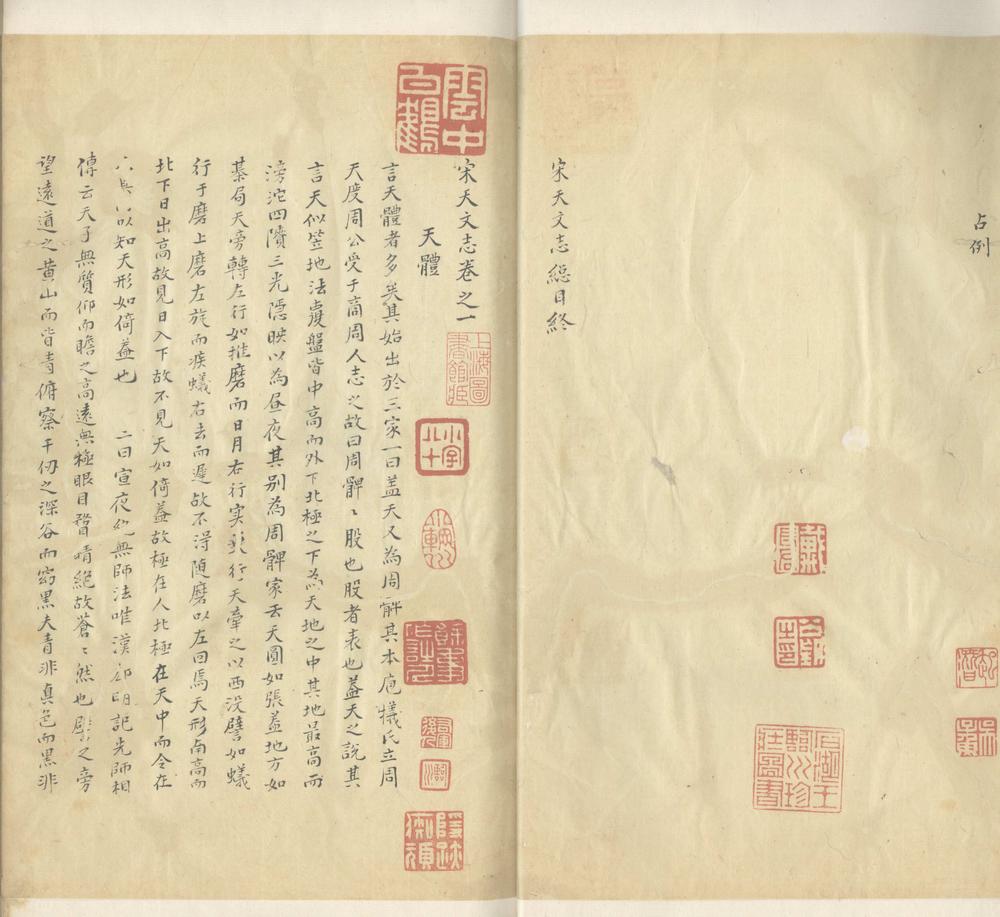 占例
宋天文志總目終
宋天文志卷之一
天體
言天體者多矣其始出於三家一曰盖天又為周髀其本庖犧氏立周
天度周公受于高周人志之故曰周髀〻股也股者表也蓋天之說其
言天似笠地法覆盤皆中高而外下北極之下為天地之中其地最高而
滂沱四隤三光隱映以為晝夜其别為周髀家云天圓如張盖地方如
棊局天旁轉左行如推磨而日月右行天牽之以西没譬如蟻
行于磨上磨左旋而疾蟻右去而遲故不得随磨以左回焉天形南高而
北下日出高故見日入下故不見天如倚蓋故極在人北極在天中而今在
人以知天形如倚蓋也 二曰宣夜絶無師法唯漢郗萌記先師相
傳云天了無質仰而瞻之高遠無極眼目瞀精絶故蒼〻然也譬之旁
望遠道之黄山而皆青俯察千仞之深谷而窈黑夫青非真色而黑非
雲中白鶴
上海圖書館臧